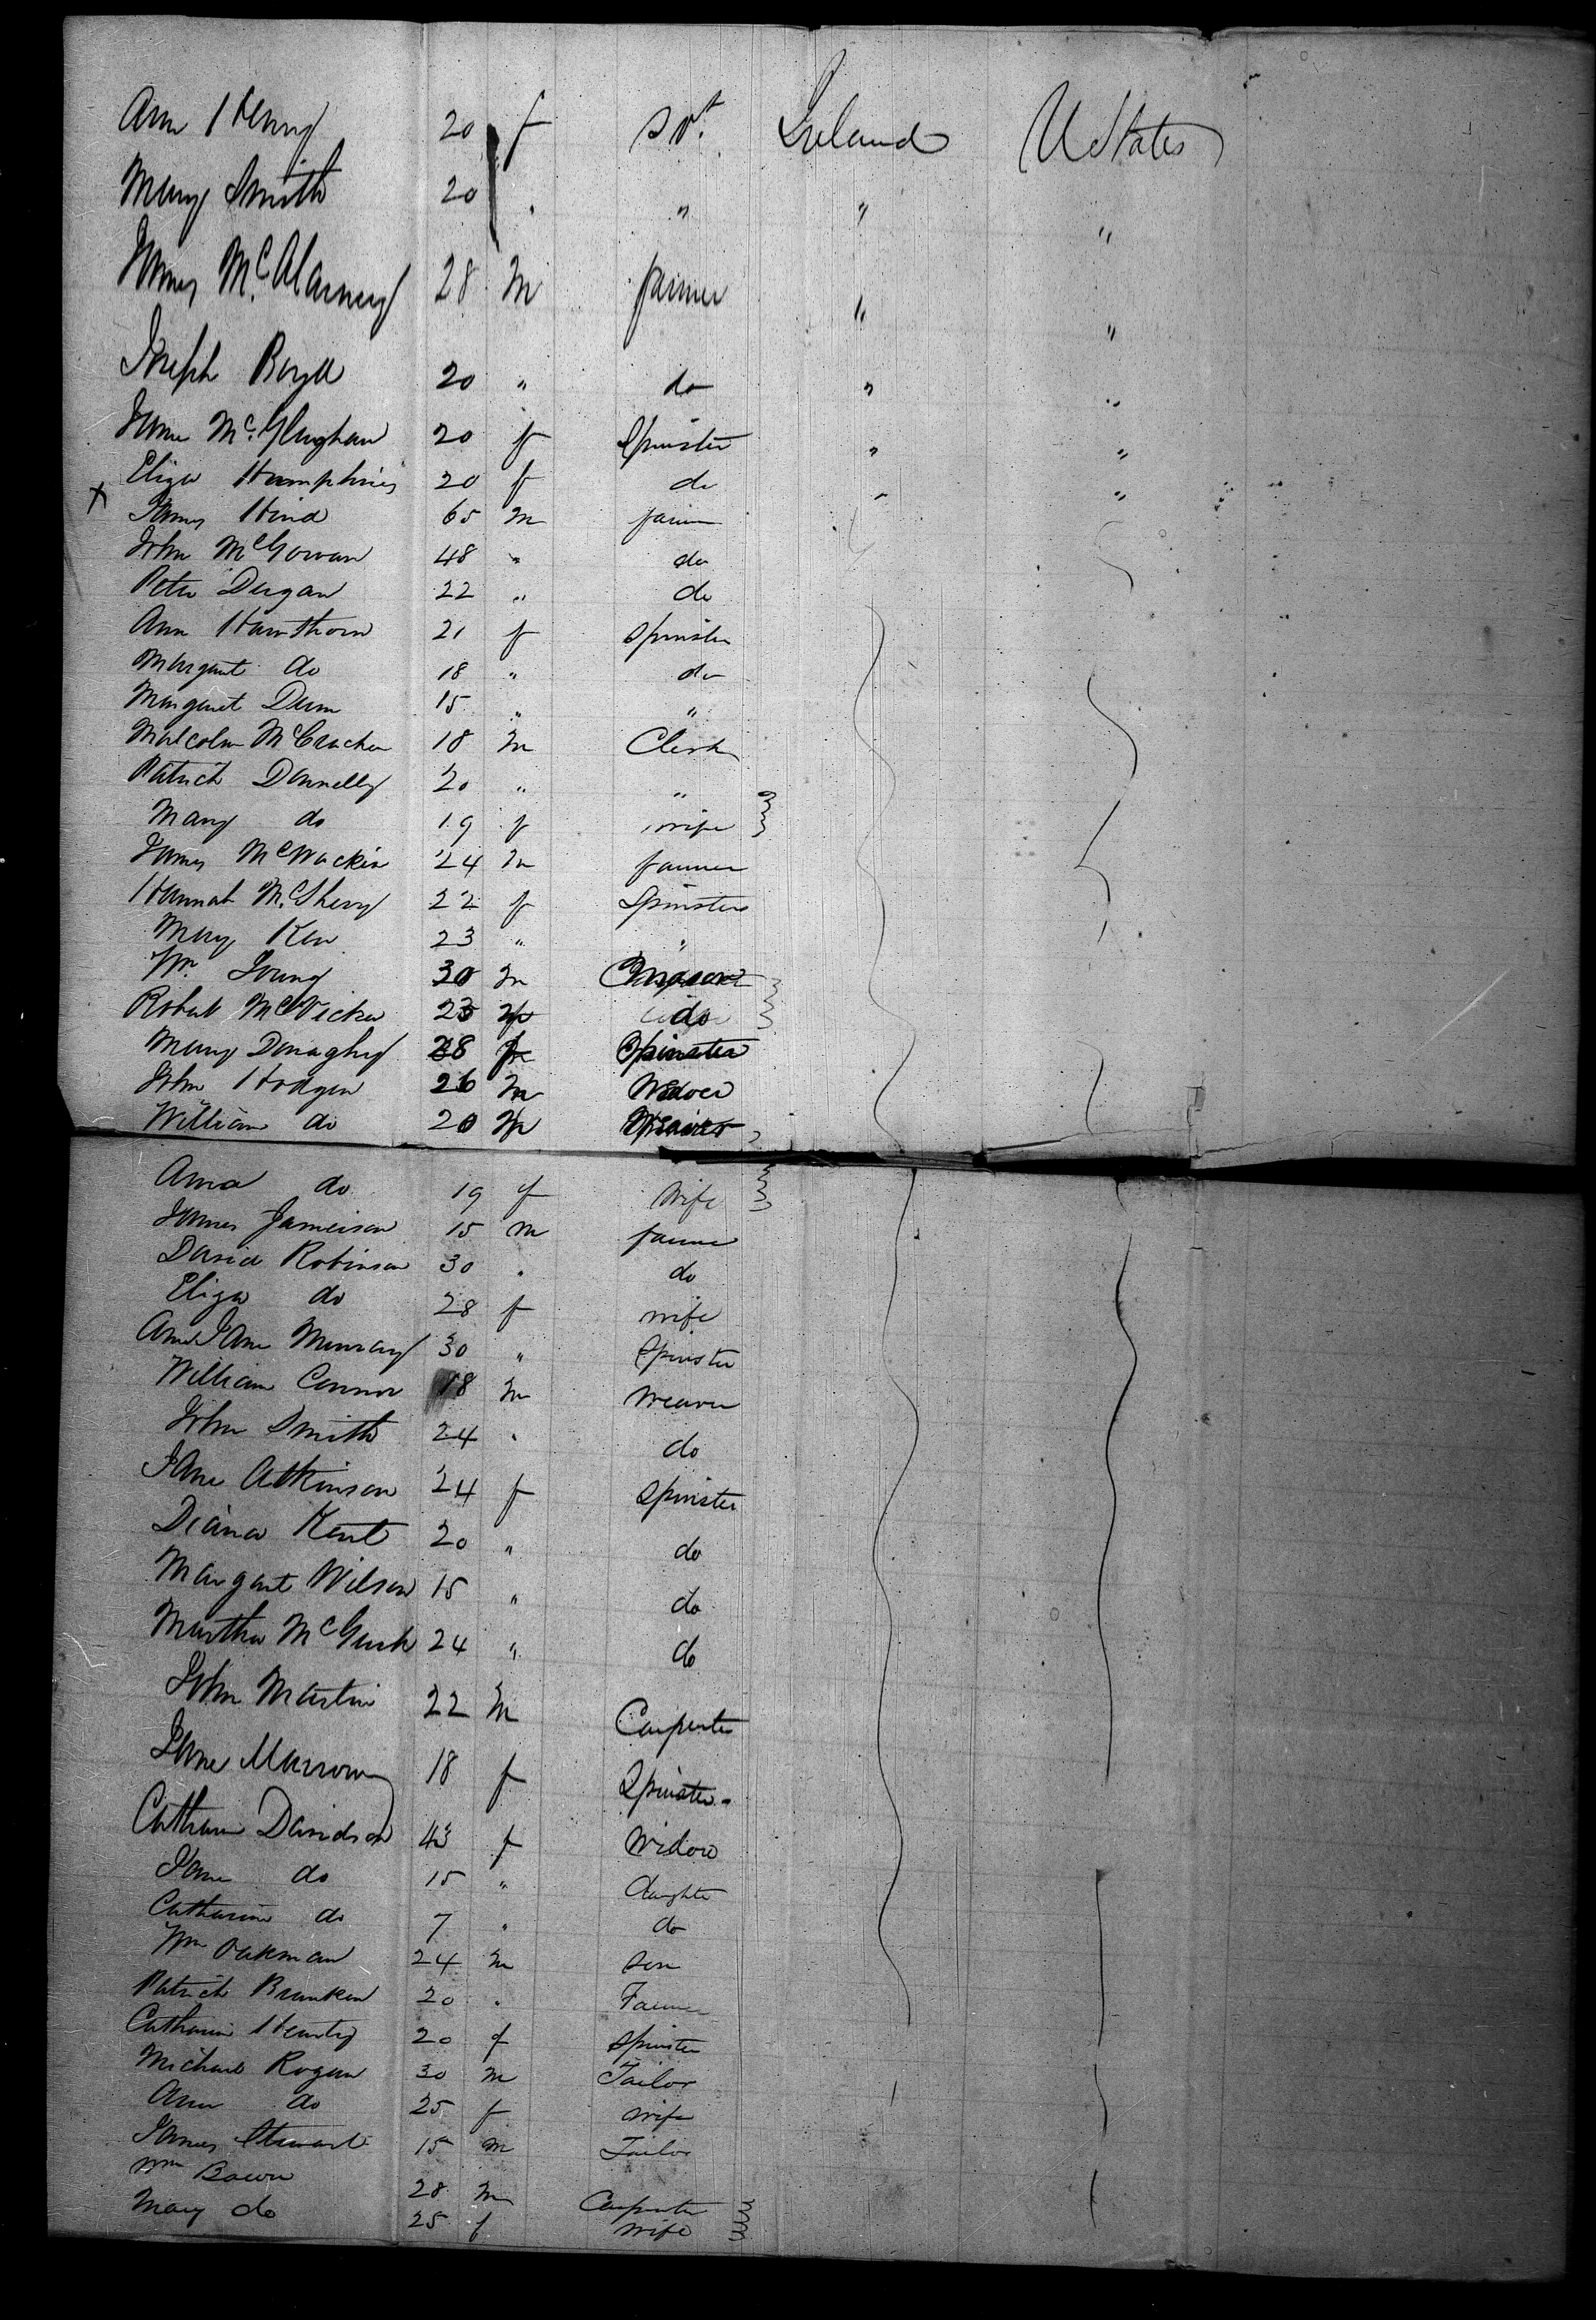 Ann Henry 20 f Svt. Ireland U States
Mary Smith 20 " " " "
James McAlarney 28 M farmer " "
Joseph Boyd 20 " do " "
Jane McGlughan 20 f Spinster " "
Eliza Humphries 20 f do " "
X James Hind 65 M farmer
John McGowan 48 " do
Peter Dugan 22 " do
Ann Hawthorn 21 f Spinster
Margaret do 18 " do
Margaret Dunn 15 " "
Malcolm McCracken 18 M Clerk
Patrick Donnelly 20 " "
Mary do 19 f wife
James McWackin 24 M farmer
Hannah McSherry 22 f Spinster
Mary Kew 23 " "
Wm Young 30 M
Robert McVicker 23 M do
Mary Donaghy 28 f Spinster
John Hodgen 26 M
William do 20 M Weaver
Anna do 19 f wife
James Jameison 15 M farmer
David Robinson 30 " do
Eliza do 28 f wife
Ann Jane Murray 30 " Spinster
William Connor 18 M weaver
John Smith 24 " do
Jane Atkinson 24 f Spinster
Diana Kent 20 " do
Margaret Wilson 15 " do
Martha McGurk 24 " do
John Martin 22 M Carpenter
Jane Marrow 18 f Spinster
Catharine Davidson 43 f Widow
Jane do 15 " daughter
Catharine do 7 " do
Wm Oakman 24 M son
Patrick Brunken 20 " Farmer
Catharine 20 f Spinster
Michael Rogan 30 M Tailor
Ann do 25 f wife
James Stewart 15 M Tailor
Wm Bowen 28 M Carpenter
Mary do 25 f wife